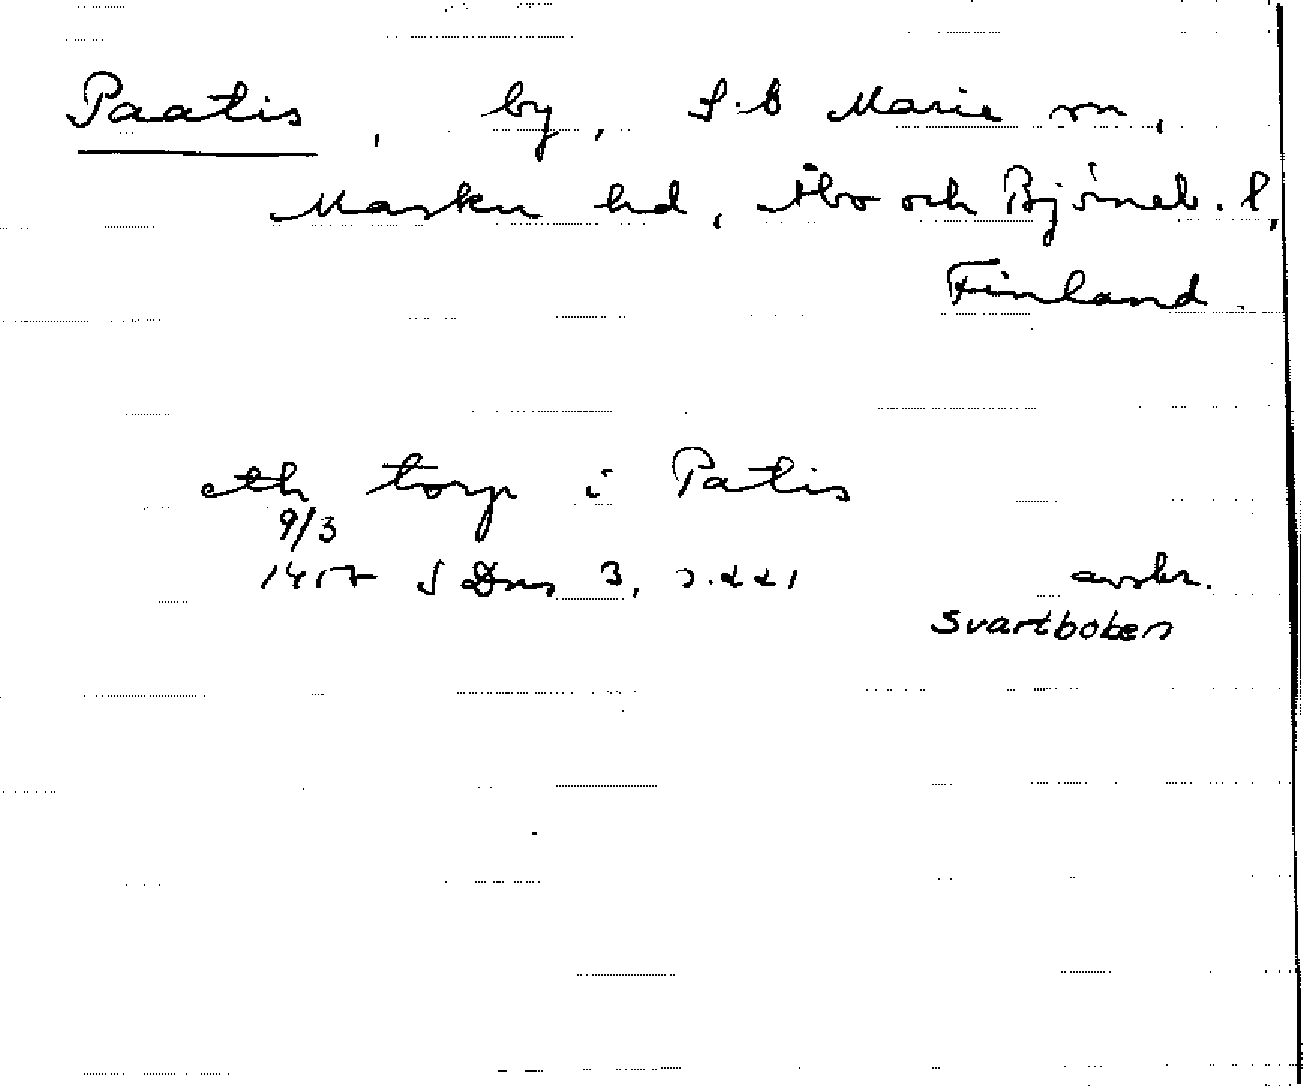 Paatis, by, S:t Marie sn,
Masku hd, Åbo och Björneb. l,
Finland.
eth torp i Patis
9/3
1457 Dns 3, s. 221 avskr.
Svartboken